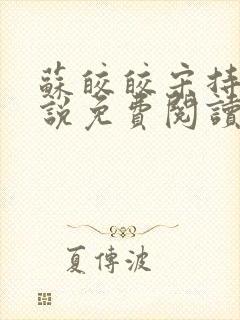 蘇皎皎宋持
說免費閱讀
夏傳波